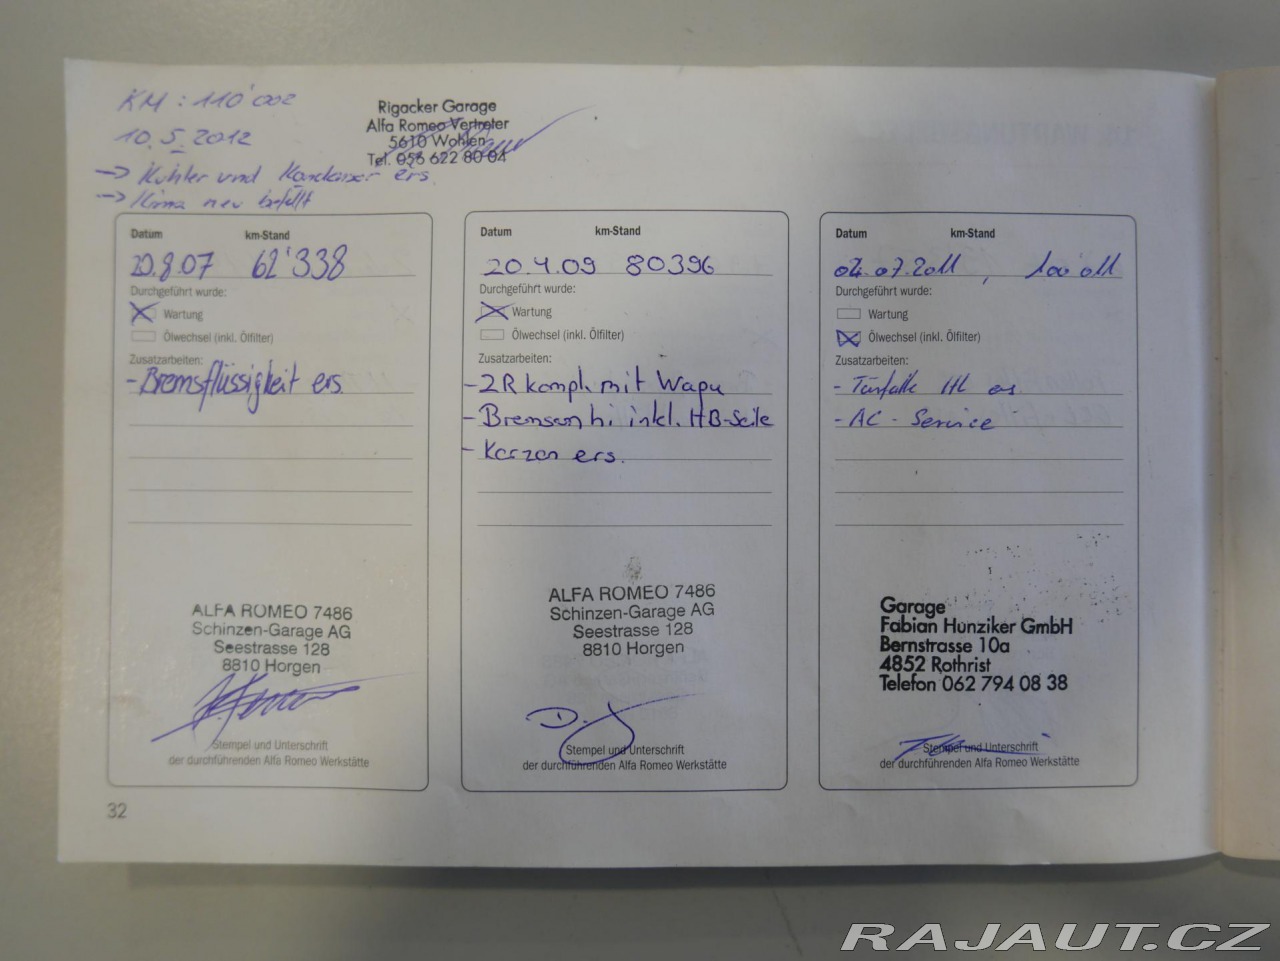 KM : 110'002
10.5.2012
→ Kühler und Kondenser ers.
→ Klima neu befüllt
Rigacker Garage
Alfa Romeo Vertreter
5610 Wohlen
Tel. 056 622 80 04
Datum km-Stand
20.8.07 62'338
Durchgeführt wurde:
Wartung
Ölwechsel (inkl. Ölfilter)
Zusatzarbeiten:
- Bremsflüssigkeit ers.
ALFA ROMEO 7486
Schinzen-Garage AG
Seestrasse 128
8810 Horgen
Stempel und Unterschrift
der durchführenden Alfa Romeo Werkstätte
32
Datum km-Stand
20.4.09 80396
Durchgeführt wurde:
Wartung
Ölwechsel (inkl. Ölfilter)
Zusatzarbeiten:
- ZR kompl. mit Wapu
- Bremsen hi inkl. HB-Seile
- Kerzen ers.
ALFA ROMEO 7486
Schinzen-Garage AG
Seestrasse 128
8810 Horgen
Stempel und Unterschrift
der durchführenden Alfa Romeo Werkstätte
Datum km-Stand
04.07.2011, 100'011
Durchgeführt wurde:
Wartung
Ölwechsel (inkl. Ölfilter)
Zusatzarbeiten:
- HL
- AC - Service
Garage
Fabian Hunziker GmbH
Bernstrasse 10a
4852 Rothrist
Telefon 062 794 08 38
Stempel und Unterschrift
der durchführenden Alfa Romeo Werkstätte
RAJAUT.CZ